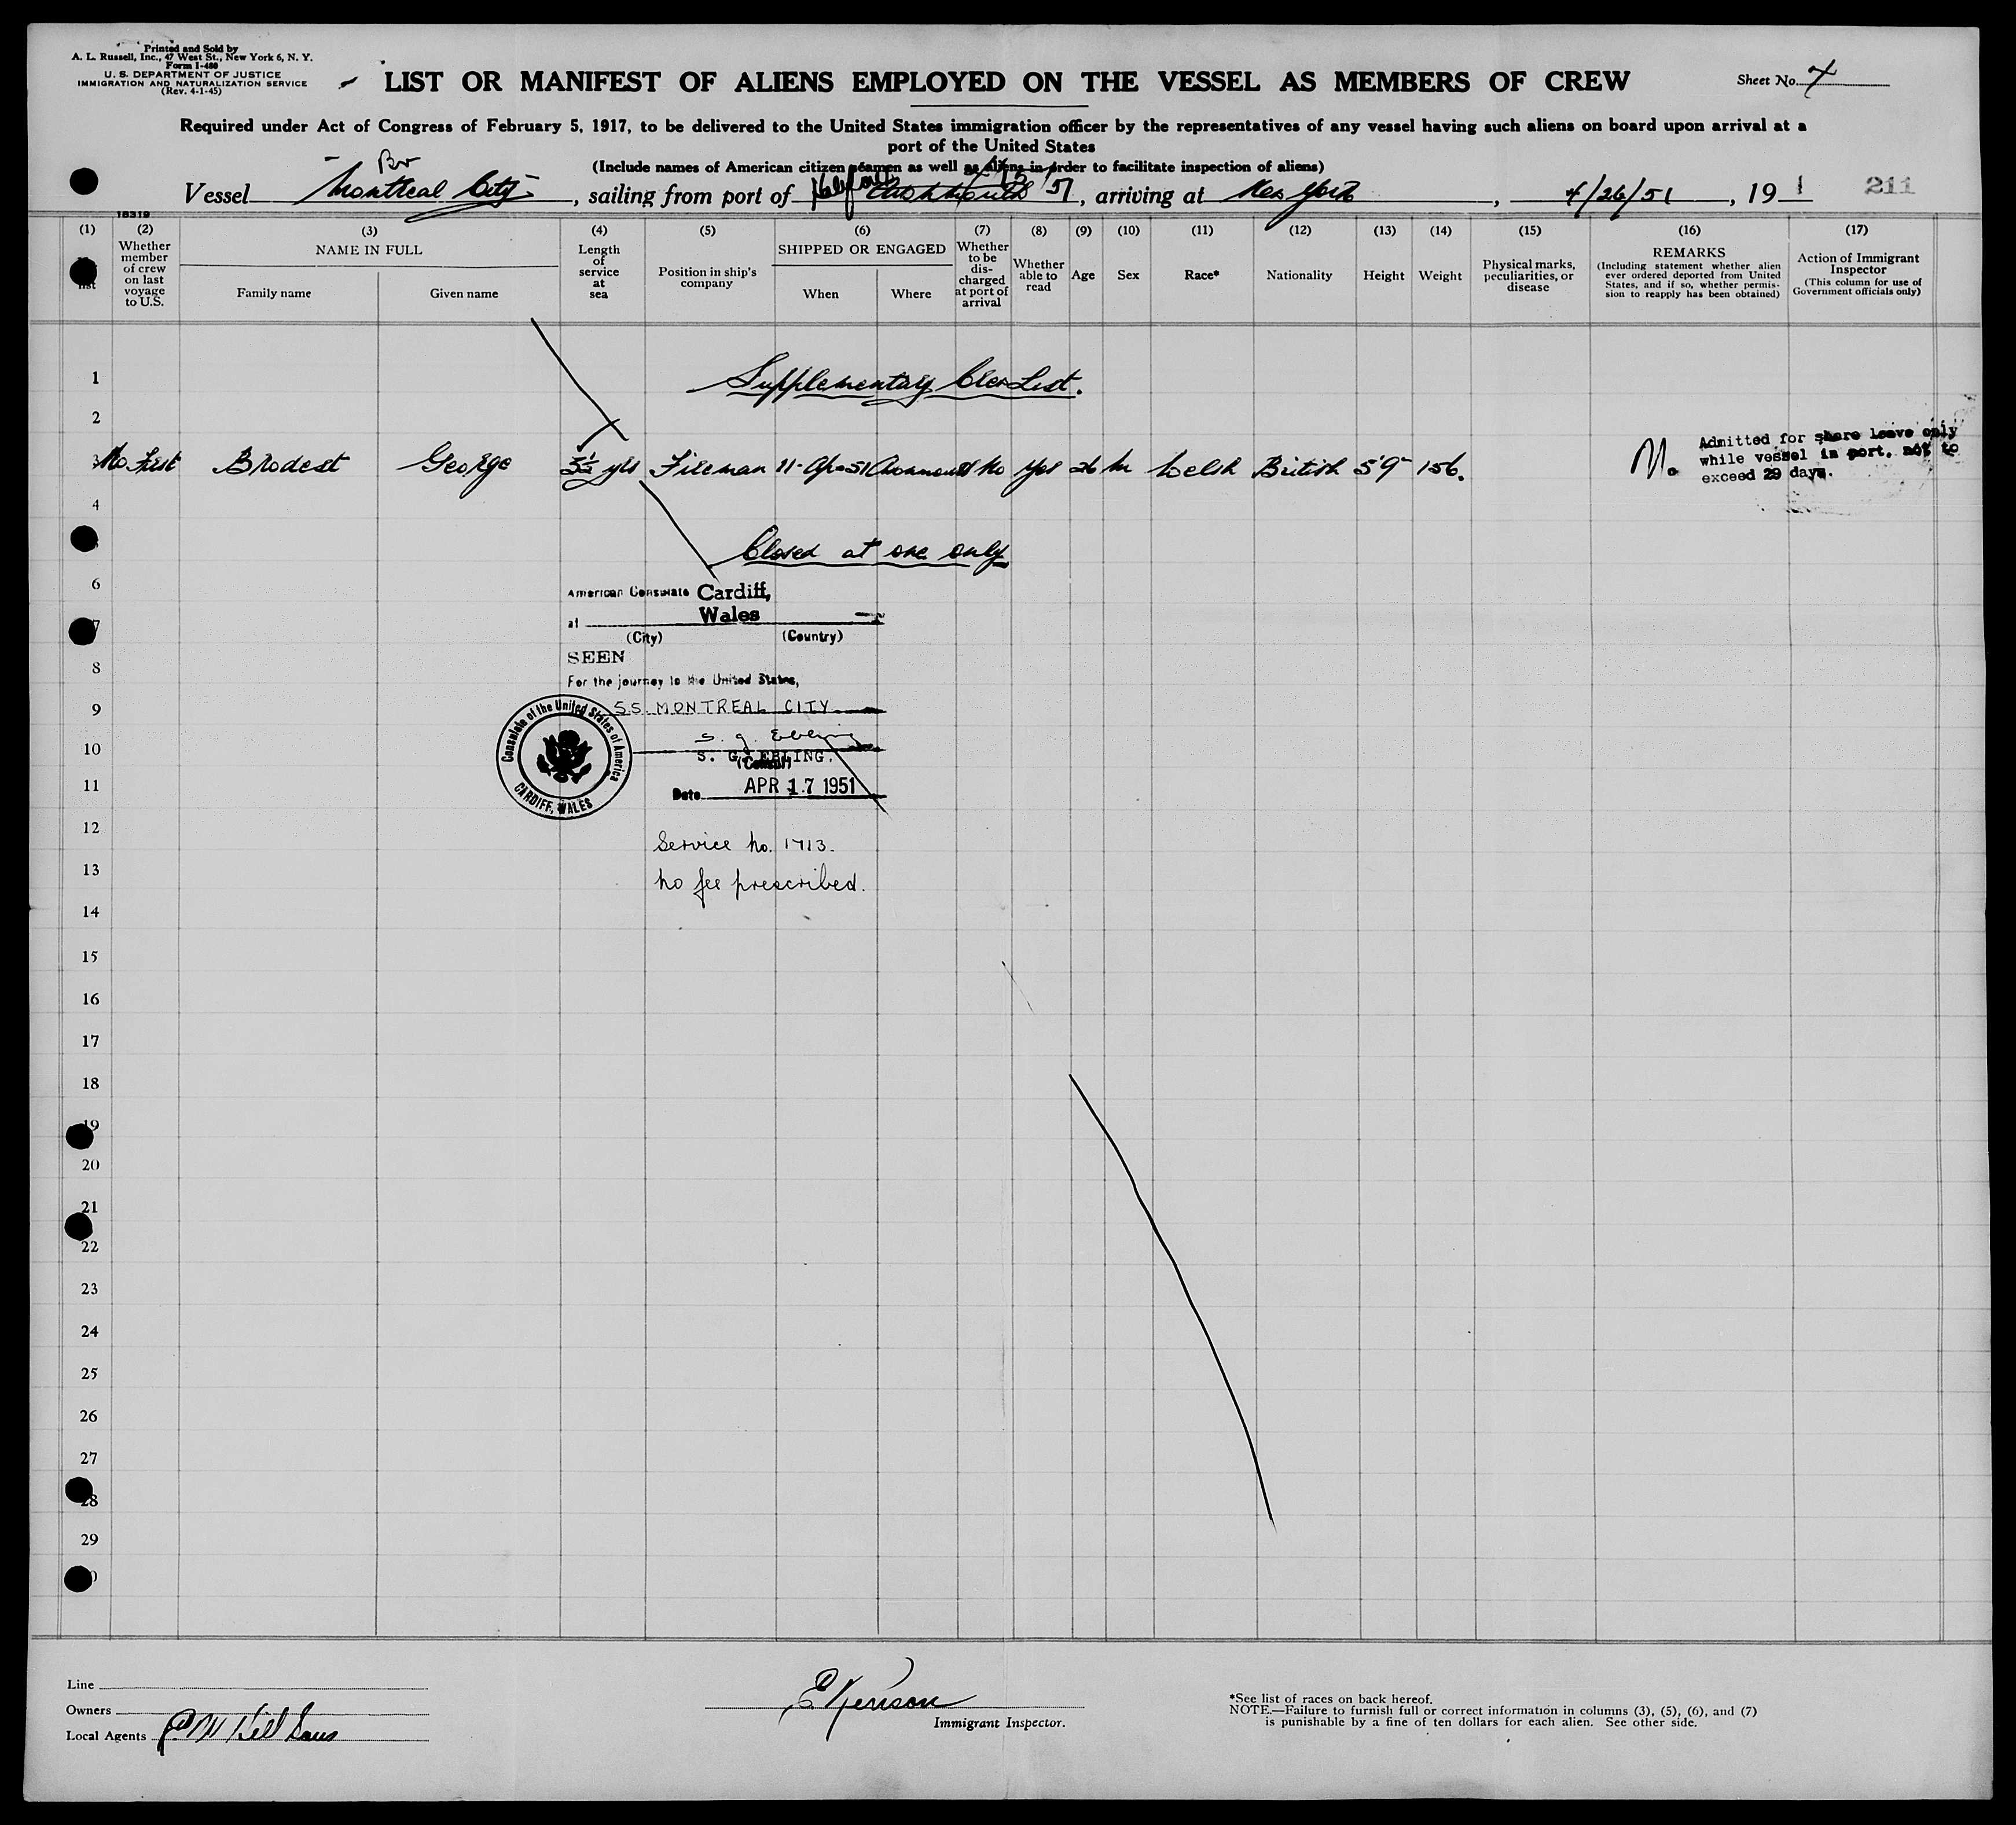 Printed and Sold by
A. L. Russell, Inc., 47 West St., New York 6, N. Y.
Form I-480
U. S. DEPARTMENT OF JUSTICE
IMMIGRATION AND NATURALIZATION SERVICE
(Rev. 4-1-45)
LIST OR MANIFEST OF ALIENS EMPLOYED ON THE VESSEL AS MEMBERS OF CREW
Sheet No. 4
Required under Act of Congress of February 5, 1917, to be delivered to the United States immigration officer by the representatives of any vessel having such aliens on board upon arrival at a
port of the United States
(Include names of American citizen seamen as well as aliens in order to facilitate inspection of aliens)
Br
Vessel Montreal City, sailing from port of Halifax 51, arriving at New York, 4/26/51, 191 211
18319
(1) (2) (3) (4) (5) (6) (7) (8) (9) (10) (11) (12) (13) (14) (15) (16) (17)
list
Whether member of crew on last voyage to U.S.
NAME IN FULL
Family name Given name
Length of service at sea
Position in ship's company
SHIPPED OR ENGAGED
When Where
Whether to be discharged at port of arrival
Whether able to read
Age
Sex
Race*
Nationality
Height
Weight
Physical marks, peculiarities, or disease
REMARKS
(Including statement whether alien ever ordered deported from United States, and if so, whether permission to reapply has been obtained)
Action of Immigrant Inspector
(This column for use of Government officials only)
1 Supplementary Crew List.
2
3 No First Brodest George 3½ yrs Fireman 11-Apr-51 Avonmouth No Yes 26 M Welsh British 5'9" 156.
No Admitted for shore leave only
while vessel in port, not to
exceed 29 days.
4
Closed at one only
6
American Consulate Cardiff,
7
at Wales
(City) (Country)
8
SEEN
For the journey to the United States,
9
SS. MONTREAL CITY
10
S. G. Ebling
S. G. EBLING.
(Consul)
11
Date APR 17 1951
Consulate of the United States of America
CARDIFF, WALES
12
Service No. 1713.
13
No fee prescribed.
14
15
16
17
18
19
20
21
22
23
24
25
26
27
28
29
Line
Owners
Local Agents
E Kenison
Immigrant Inspector.
*See list of races on back hereof.
NOTE.—Failure to furnish full or correct information in columns (3), (5), (6), and (7)
is punishable by a fine of ten dollars for each alien. See other side.